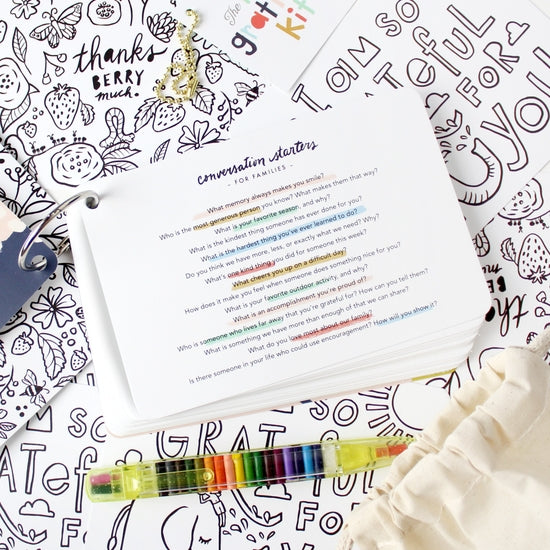 thanks
BERRY
much.
The
grati
kit
I AM SO
GRATEFUL
FOR
you
conversation starters
- FOR FAMILIES -
What memory always makes you smile?
Who is the most generous person you know? What makes them that way?
What is your favorite season, and why?
What is the kindest thing someone has ever done for you?
What is the hardest thing you've ever learned to do?
Do you think we have more, less, or exactly what we need? Why?
What's one kind thing you did for someone this week?
What cheers you up on a difficult day?
How does it make you feel when someone does something nice for you?
What is your favorite outdoor activity, and why?
What is an accomplishment you're proud of?
Who is someone who lives far away that you're grateful for? How can you tell them?
What is something we have more than enough of that we can share?
What do you love most about our family? How will you show it?
Is there someone in your life who could use encouragement?
SO
ATEful
FO
I AM SO
GRAT
FO
SO
FUL
FOR